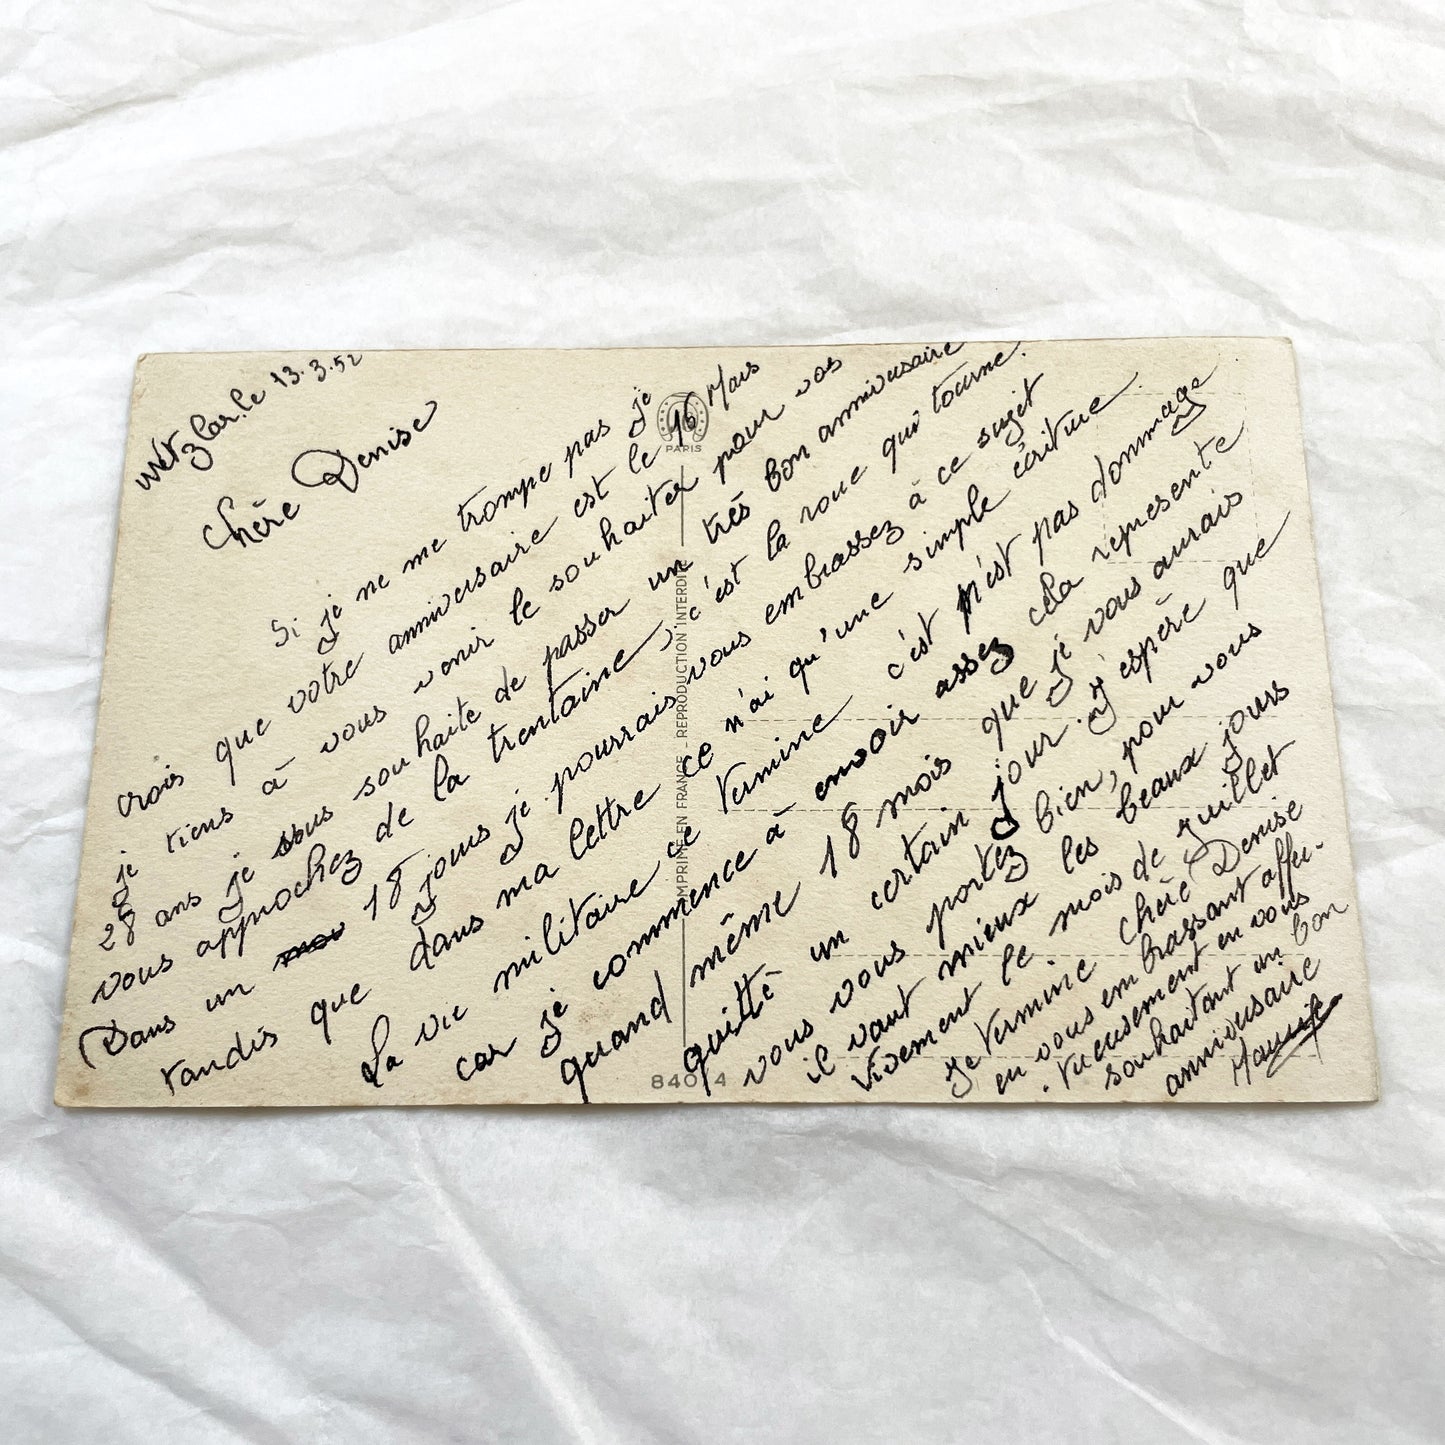 Wetzlar. le 13.3.52
Chère Denise
Si je ne me trompe pas je
crois que votre anniversaire est le 16 Mars
je tiens à vous venir le souhaiter pour vos
28 ans je vous souhaite de passer un très bon anniversaire
vous approchez de la trentaine, c'est la roue qui tourne.
Dans un 18 jours je pourrais vous embrassez à ce sujet
tandis que dans ma lettre ce n'ai qu'une simple écriture.
La vie militaire ce termine c'est n'est pas dommage
car je commence à envoir assez cela represente
quand même 18 mois que je vous aurais
quitté un certain jour. j'espère que
vous vous portez bien, pour vous
il vaut mieux les beaux jours
vivement le mois de juillet
Je termine chère Denise
en vous embrassant affec-
tueusement en vous
souhaitant un bon
anniversaire
PARIS
IMPRIMÉ EN FRANCE - REPRODUCTION INTERDITE